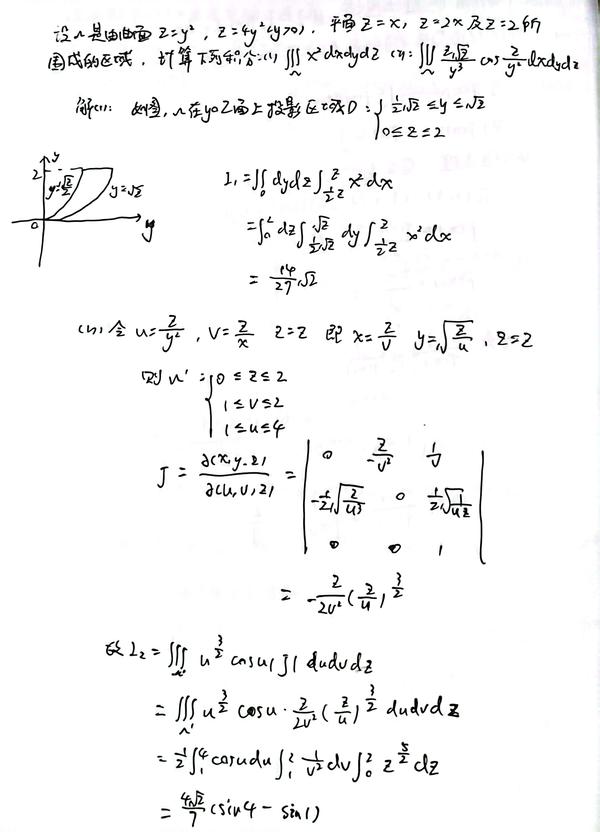 设Ω是由曲面 z=y², z=4y²(y>0), 平面z=x, z=2x及z=2所
围成的区域, 计算下列积分:(1) ∭_Ω x²dxdydz (2): ∭_Ω z√z/y³ cos z/y² dxdydz
解(1): 如图, Ω在yoz面上投影区域D: { ½√z ≤ y ≤ √z
0 ≤ z ≤ 2
y
2
y=√z/2
y=√z
0
y
I₁=∬_D dydz ∫_{½z}^{z} x²dx
=∫_0^2 dz ∫_{½√z}^{√z} dy ∫_{½z}^{z} x²dx
= 14/27 √2
(2) 令 u=z/y², v=z/x z=z 即 x=z/v y=√(z/u), z=z
则Ω': { 0 ≤ z ≤ 2
1 ≤ v ≤ 2
1 ≤ u ≤ 4
J = ∂(x,y,z)/∂(u,v,z) = | 0 -z/v² 1/v
-½√(z/u³) 0 ½√(1/uz)
0 0 1 |
= -z/2v² (z/u)^{3/2}
故I₂=∭_Ω' u^{3/2} cosu|J| dudvdz
=∭_Ω' u^{3/2} cosu · z/2v² (z/u)^{3/2} dudvdz
=½∫_1^4 cosudu ∫_1^2 1/v² dv ∫_0^2 z^{5/2} dz
= 4√2/7 (sin4 - sin1)